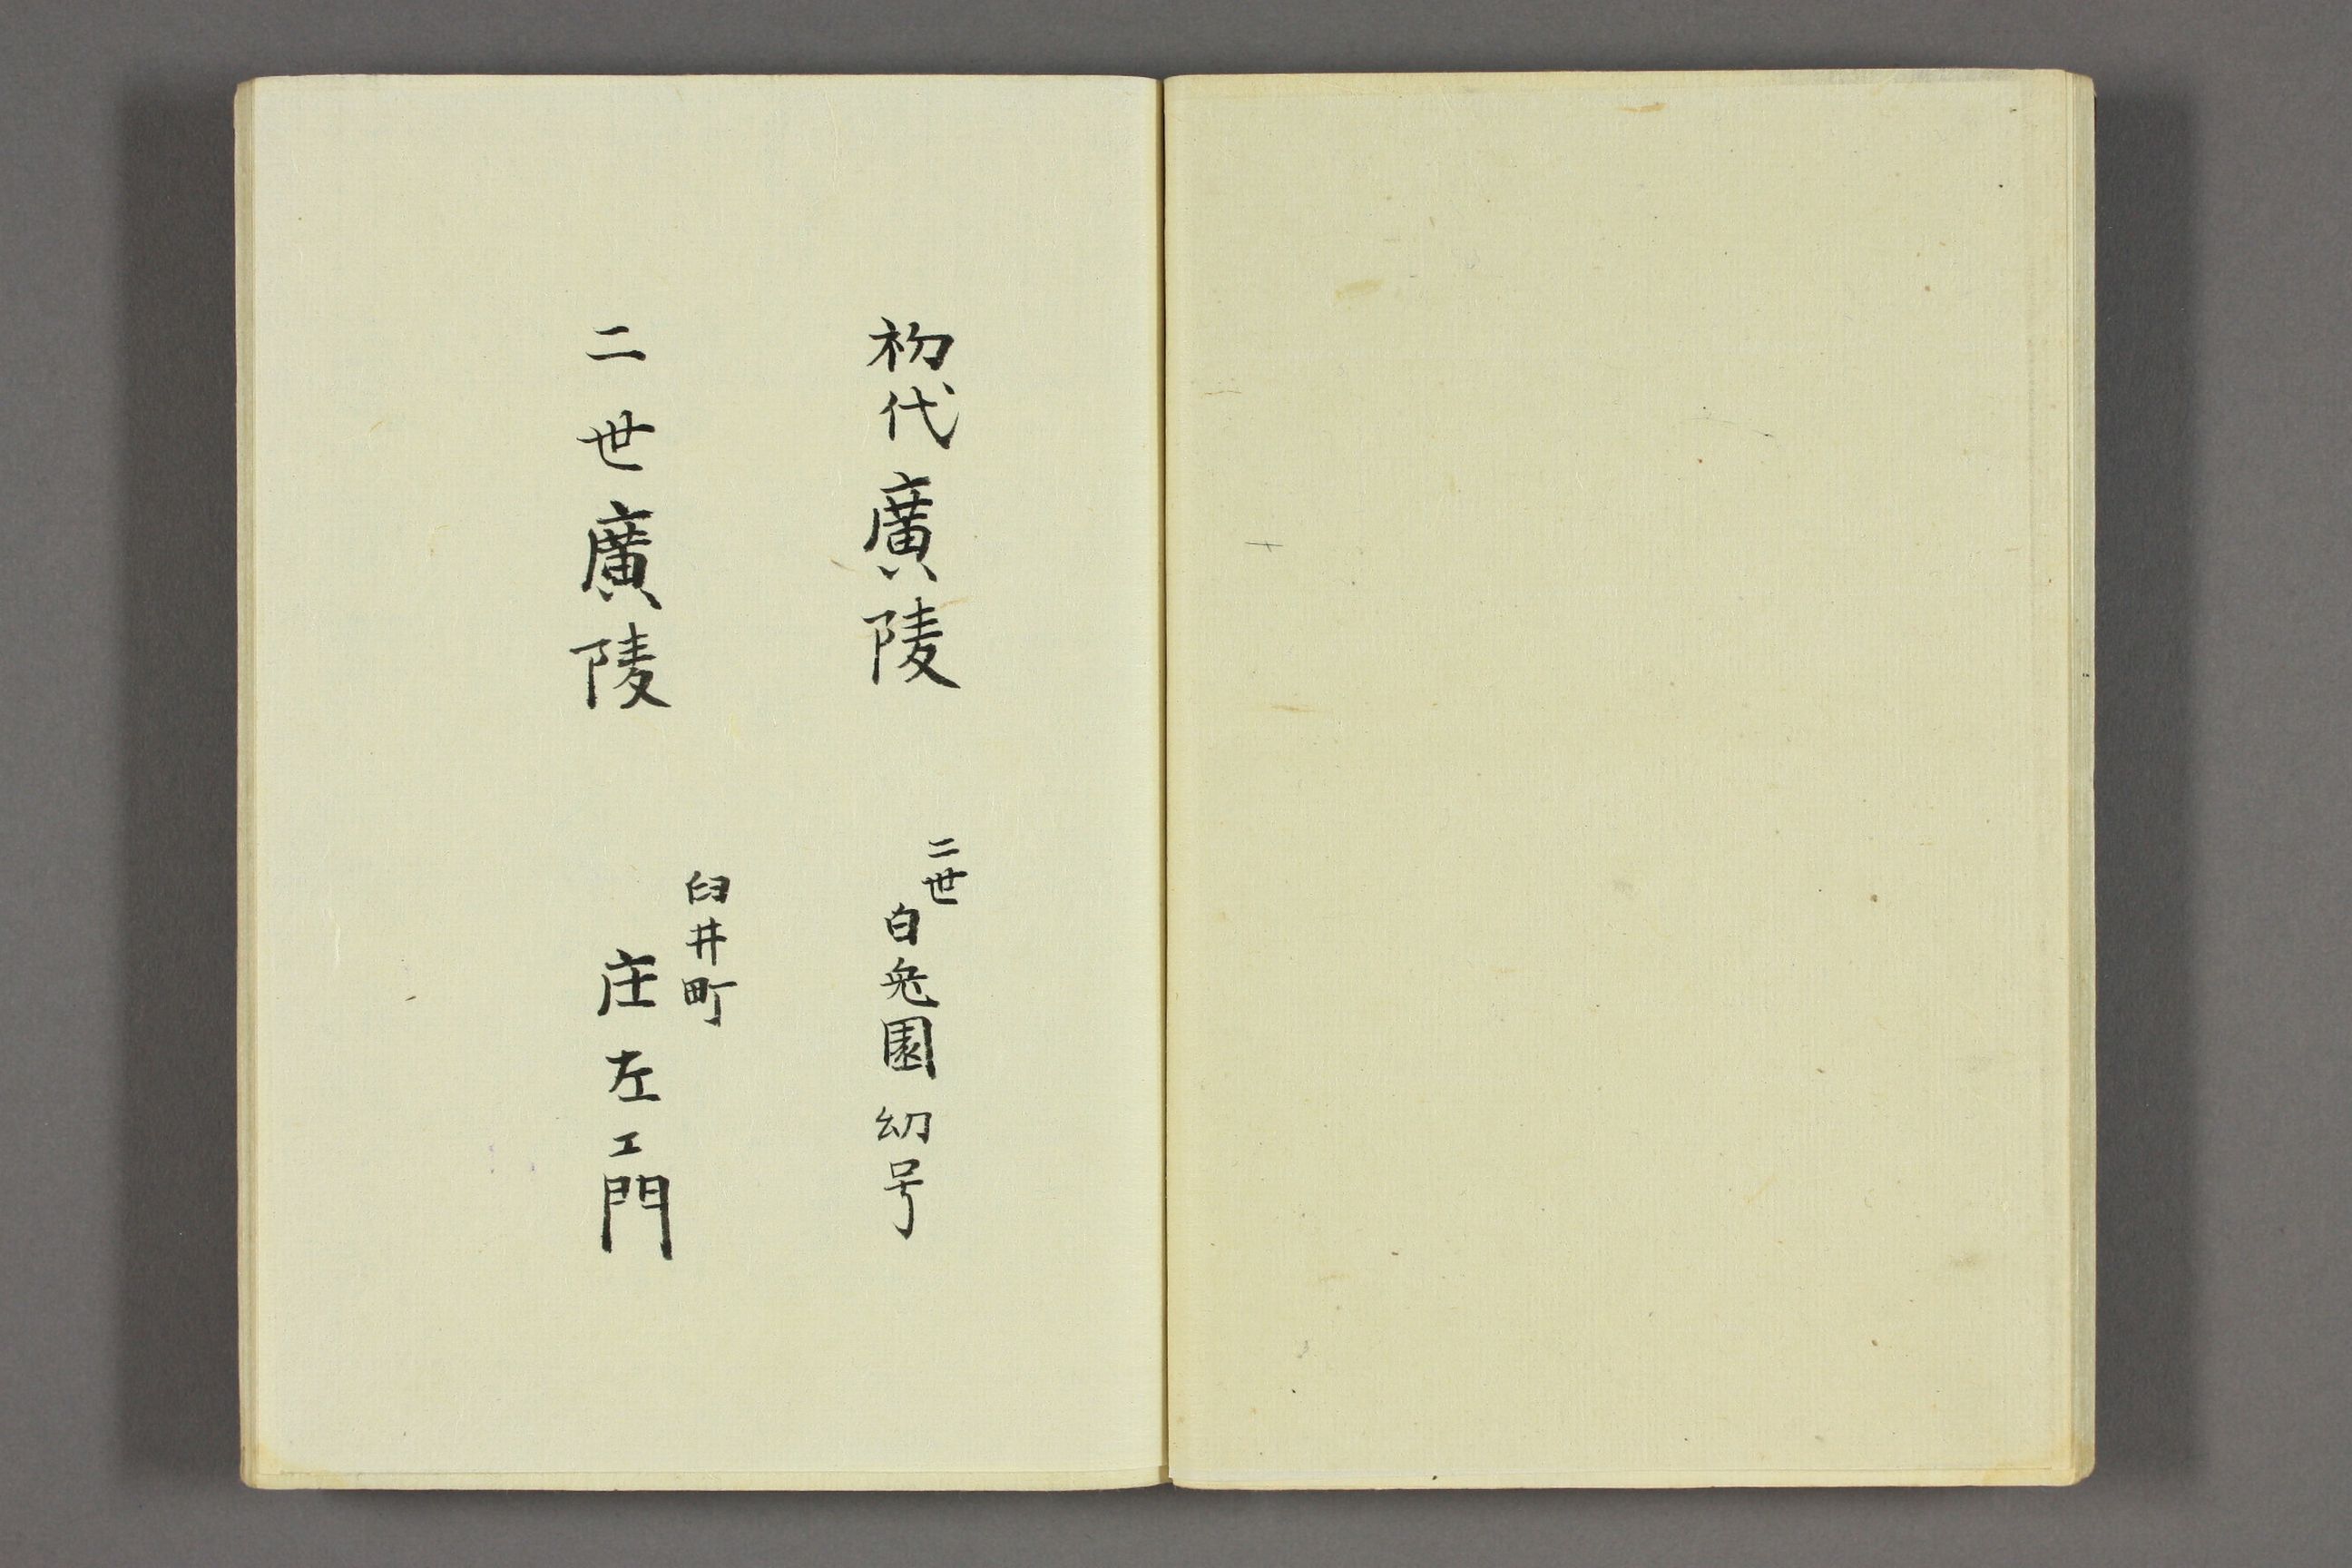 初代廣陵
二世
白兔園幼号
二世廣陵
臼井町
庄左エ門